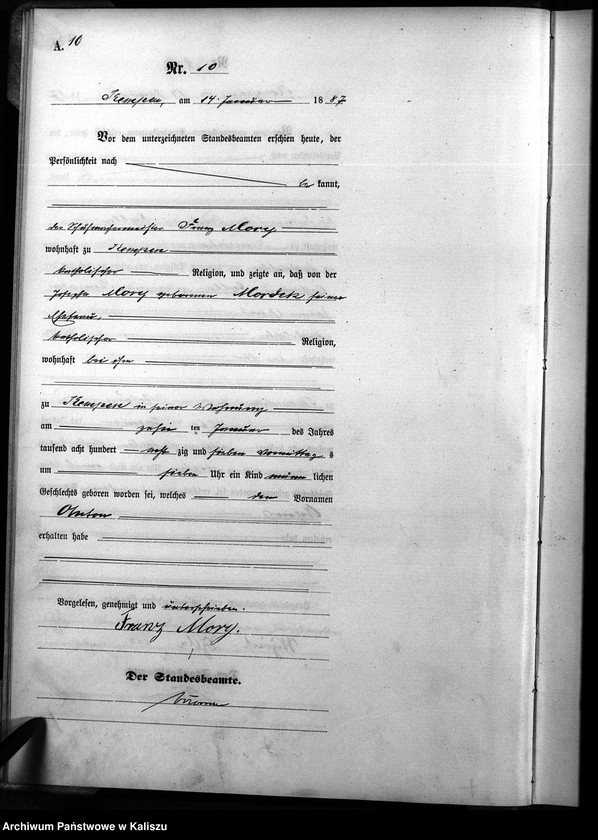 A. 10
Nr. 10
Kempen, am 14. Januar 1887
Vor dem unterzeichneten Standesbeamten erschien heute, der
Persönlichkeit nach
be kannt,
der Schuhmachermeister Franz Mory
wohnhaft zu Kempen
katholischer Religion, und zeigte an, daß von der
Josepha Mory geborenen Mordek seiner
Ehefrau,
katholischer Religion,
wohnhaft bei ihm
zu Kempen in seiner Wohnung
am zehn ten Januar des Jahres
tausend acht hundert acht zig und sieben Vormittag s
um sieben Uhr ein Kind männ lichen
Geschlechts geboren worden sei, welches den Vornamen
Anton
erhalten habe
Vorgelesen, genehmigt und unterschrieben.
Franz Mory.
Der Standesbeamte.
Archiwum Państwowe w Kaliszu